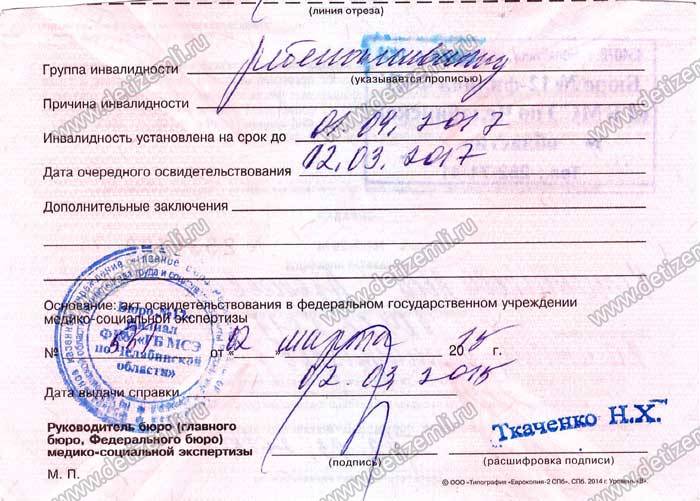 (линия отреза)
Группа инвалидности ребенок-инвалид
(указывается прописью)
Причина инвалидности
Инвалидность установлена на срок до 01.04.2017
Дата очередного освидетельствования 02.03.2017
Дополнительные заключения
Основание: акт освидетельствования в федеральном государственном учреждении
медико-социальной экспертизы
№ от « 02 » марта 2015 г.
Дата выдачи справки 02.03.2015
Руководитель бюро (главного
бюро, Федерального бюро)
медико-социальной экспертизы
Ткаченко Н.Х.
(подпись) (расшифровка подписи)
М. П.
© ООО «Типография «Еврокопия-2 СПб», СПб. 2014 г. Уровень «В».
Бюро №12
филиал
ФКУ «ГБ МСЭ
по Челябинской
области»
www.detizemli.ru